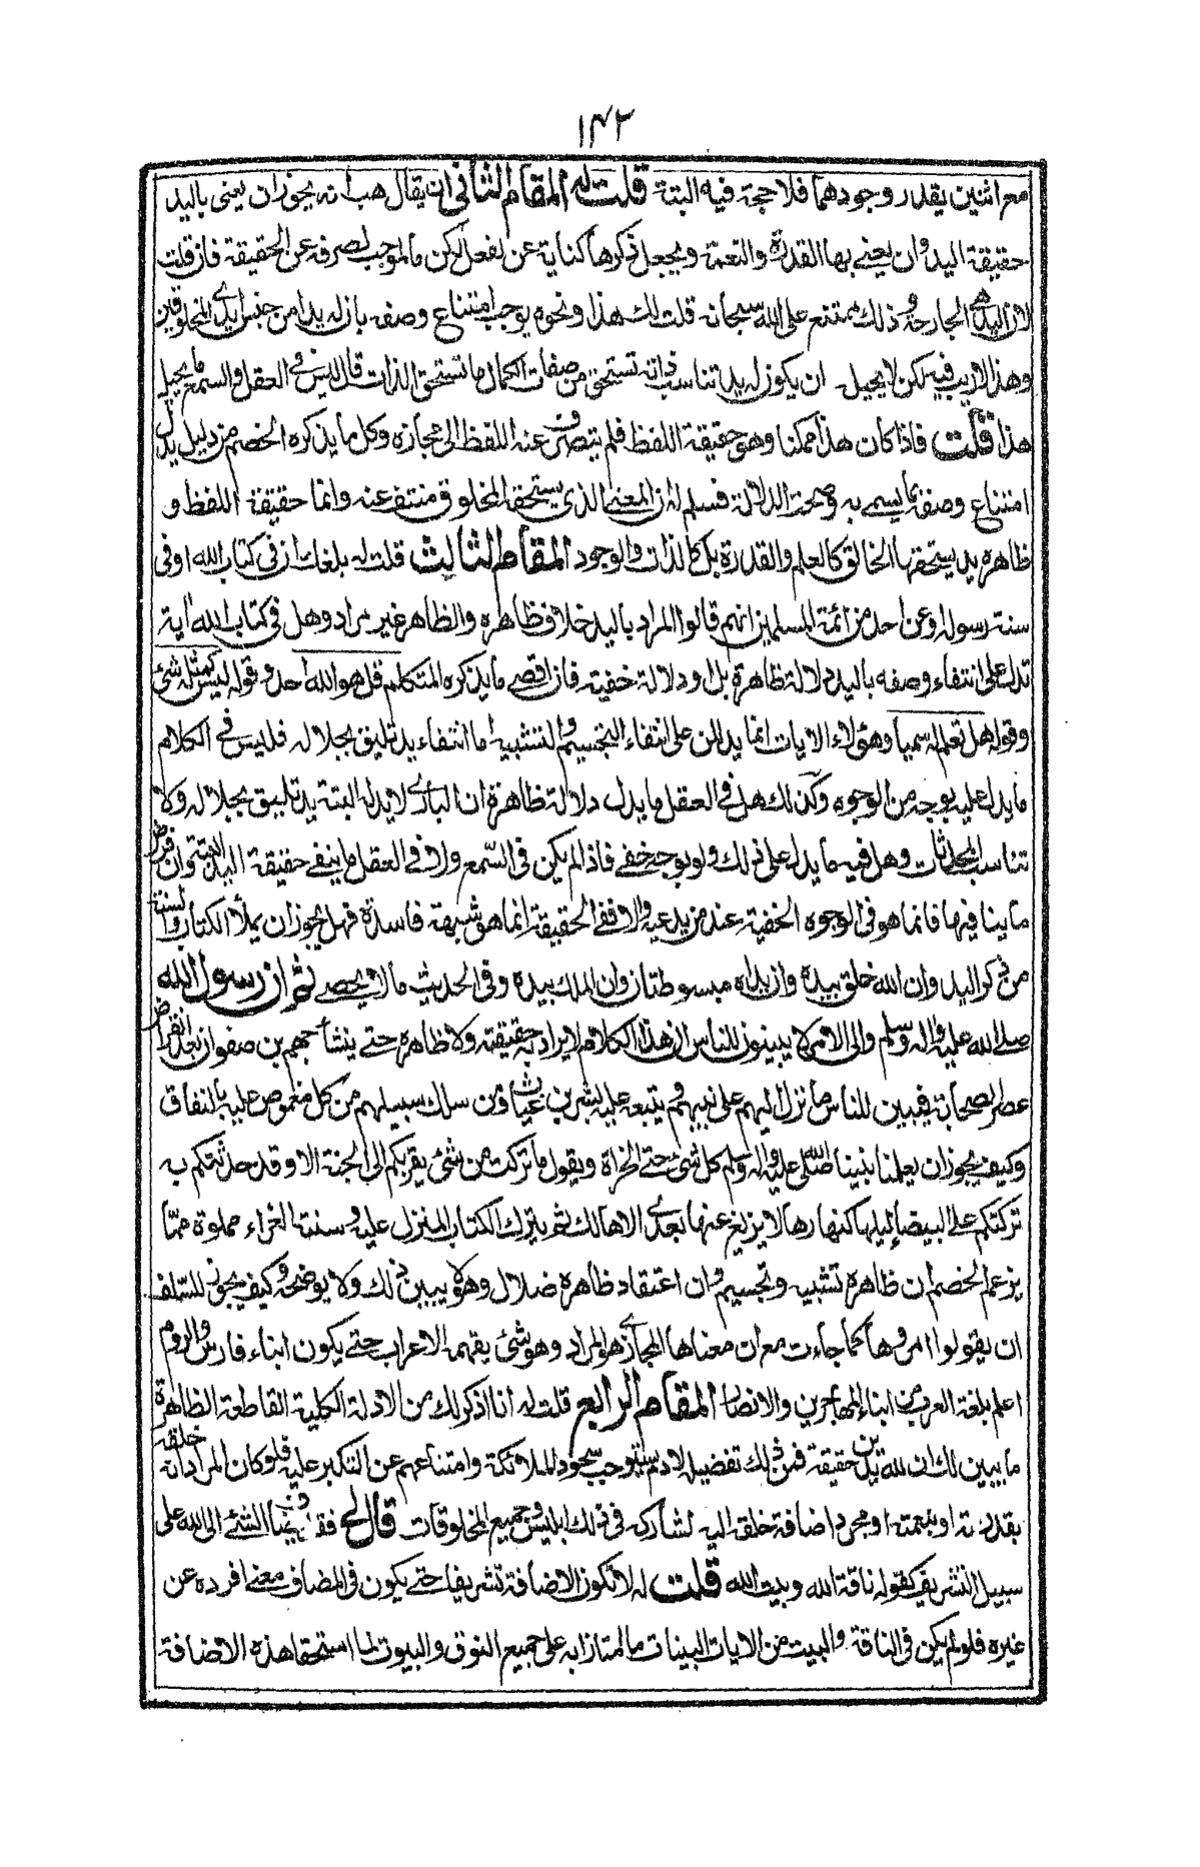 ١٤٢
مع اثنين يقدر وجودهما فلا حجة فيه البتة قلت له المقام الثانى ان يقال هب انه يجوز ان يعنى باليد
حقيقة اليد وان يعنى بها القدرة والنعمة ويجعل ذكرها كناية عن الفعل لكن ما الموجب لصرفه عن الحقيقة فان قلت
لان اليد هى الجارحة وذلك ممتنع على الله سبحانه قلت لك هذا ونحوه يوجب امتناع وصفه بان له يدا من جنس ايدى المخلوقين
وهذا لا ريب فيه لكن لا يحيل ان يكون له يد تناسب ذاته تستحق من صفات الكمال ما تستحق الذات قال ليس فى العقل والسمع ما يحيل
هذا قلت فاذا كان هذا ممكنا وهو حقيقة اللفظ فلم يتصرف عنه اللفظ الى مجازه وكل ما يذكره الخصم من دليل يدل
امتناع وصفه بما يسمى به وصحت الدلالة فسلم له ان المعنى الذى يستحقه المخلوق منتف عنه وانما حقيقة اللفظ و
ظاهره يد يستحقها الخالق كالعلم والقدرة بل كالذات والوجود المقام الثالث قلت له بلغك ان فى كتاب الله او فى
سنة رسوله او عن احد من ائمة المسلمين انهم قالوا المراد باليد خلاف ظاهره والظاهر غير مراد وهل فى كتاب الله اية
تدل على انتفاء وصفه باليد دلالة ظاهرة بل او دلالة خفية فان اقصى ما يذكره المتكلم قل هو الله احد وقوله ليس كمثله شئ
وقوله هل تعلم له سميا وهؤلاء الايات انما يدللن على انتفاء التجسيم والتشبيه اما انتفاء يد تليق بجلاله فليس فى الكلام
ما يدل عليه بوجه من الوجوه وكذلك هل فى العقل ما يدل دلالة ظاهرة ان البارى لا يد له البتة يد تليق بجلاله ولا
تناسب المحدثات وهل فيه ما يدل على ذلك ولو بوجه خفى فاذا لم يكن فى السمع ولا فى العقل ما ينفى حقيقة اليد البتة وان فرض
ما ينافيها فانما هو فى الوجوه الخفية عند من يدعيه والا ففى الحقيقة انما هو شبهة فاسدة فهل يجوز ان يملأ الكتاب والسنة
من ذكر اليد وان الله خلق بيده وان يداه مبسوطتان وان الملك بيده وفى الحديث ما لا يحصى ثم ان رسول الله
صلى الله عليه واله وسلم والى الامر لا يبينون للناس ان هذا الكلام لا يراد به حقيقته ولا ظاهره حتى ينشأ جهم بن صفوان بعد انقراض
عصر الصحابة فيبين للناس ما نزل اليهم على نبيهم ويتبعه عليه بشر بن غياث ومن سلك سبيلهم من كل مغموص عليه بالنفاق
وكيف يجوز ان يعلمنا نبينا صلى الله عليه واله وسلم كل شئ حتى الخراة ويقول ما تركت من شئ يقربكم الى الجنة الا وقد حدثتكم به
تركتكم على البيضاء ليلها كنهارها لا يزيغ عنها بعدى الا هالك ثم يترك الكتاب المنزل عليه وسنته الغراء مملوة مما
يزعم الخصم ان ظاهره تشبيه وتجسيم وان اعتقاد ظاهره ضلال وهو لا يبين ذلك ولا يوضحه وكيف يجوز للسلف
ان يقولوا امروها كما جاءت مع ان معناها المجازى هو المراد وهو شئ يفهمه الاعراب حتى يكون ابناء فارس والروم
اعلم بلغة العرب من ابناء المهاجرين والانصار المقام الرابع قلت له انا اذكر لك من الادلة الكلية القاطعة الظاهرة
ما يبين لك ان لله يدين حقيقة فمن ذلك تفضيله لادم يستوجب سجود الملائكة وامتناعهم عن التكبر عليه فلو كان المراد انه خلقه
بقدرته او بنعمته او مجرد اضافة خلقه اليه لشاركه فى ذلك ابليس وجميع المخلوقات قال لى فقد يضاف الشئ الى الله على
سبيل التشريف كقوله ناقة الله وبيت الله قلت له لا تكون الاضافة تشريفا حتى يكون فى المضاف معنى افرده عن
غيره فلو لم يكن فى الناقة والبيت من الايات البينات ما امتازا به على جميع النوق والبيوت لما استحقا هذه الاضافة